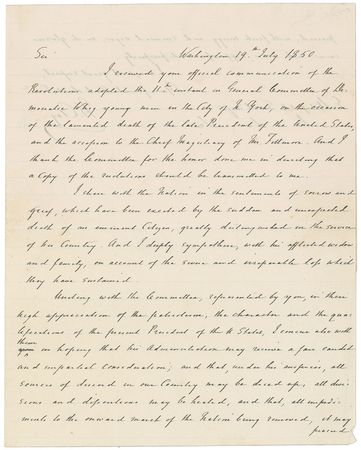 Sir
Washington 19.th July 1850
I received your official communication of the
Resolutions adopted the 11.th instant in General Committee of De-
mocratic Whig young men in the City of N. York, on the occasion
of the lamented death of the late President of the United States,
and the accession to the Chief Magistracy of Mr Fillmore. And I
thank the Committee for the honor done me in directing that
a Copy of the resolutions should be transmitted to me.
I share with the Nation in the sentiments of sorrow and
grief, which have been excited by the sudden and unexpected
death of an eminent Citizen, greatly distinguished in the service
of his Country. And I deeply sympathise, with his afflicted widow
and family, on account of the severe and irreparable loss which
they have sustained.
Uniting with the Committee, represented by you, in their
high appreciation of the patriotism, the character and the qua-
lifications of the present President of the U States, I concur also with
them
in hoping that his Administration may receive a fair candid
and impartial consideration; and that, under his auspices, all
sources of discord in our Country may be dried up, all divi-
sions and dissentions may be healed, and that, all impedi-
ments to the onward march of the Nation being removed, it may
proceed